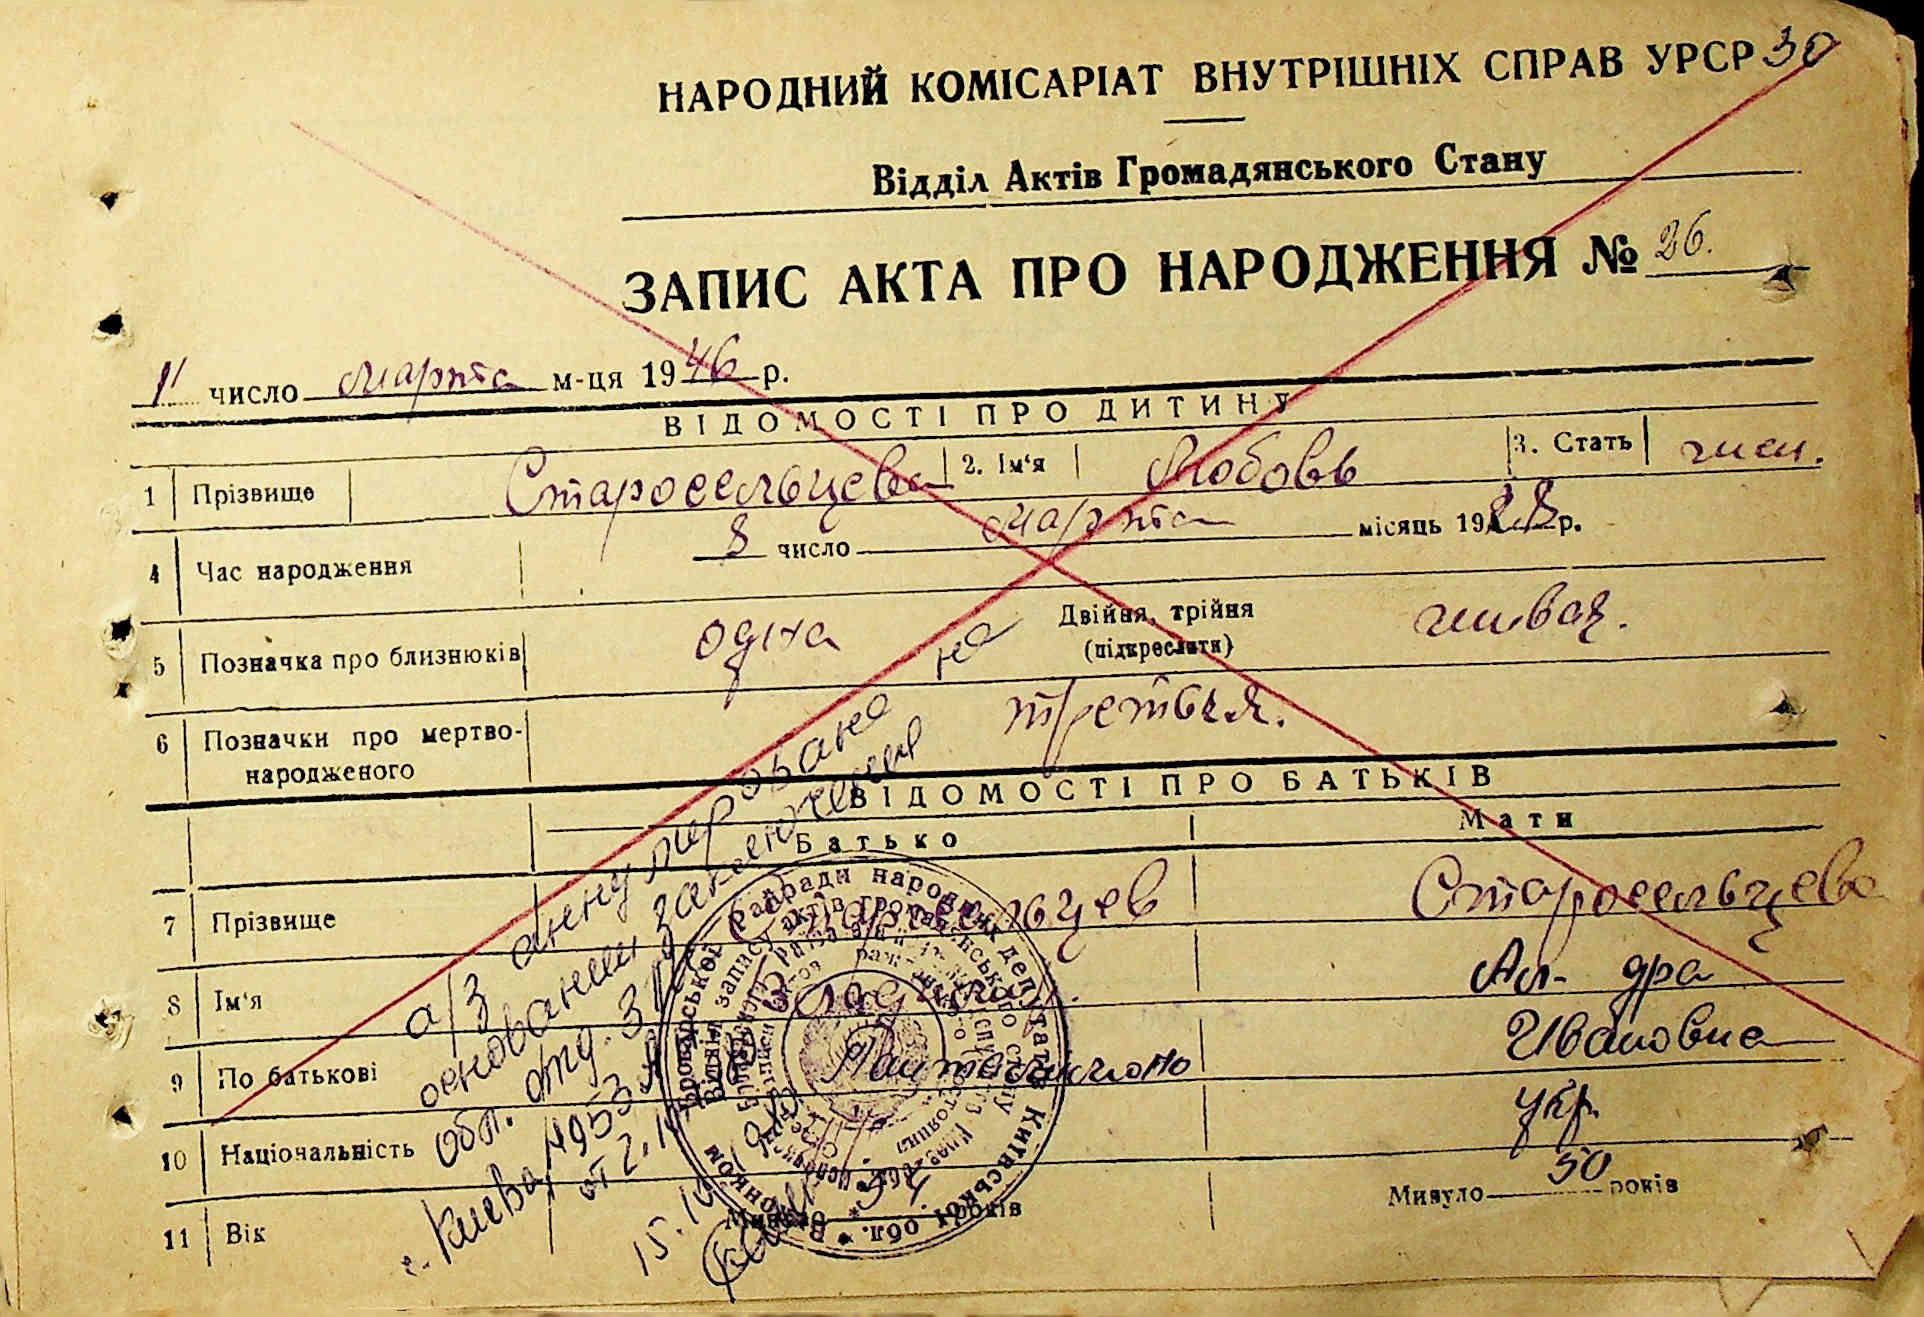 НАРОДНИЙ КОМІСАРІАТ ВНУТРІШНІХ СПРАВ УРСР 30
Відділ Актів Громадянського Стану
ЗАПИС АКТА ПРО НАРОДЖЕННЯ № 26.
11 число марта м-ця 1946 р.
ВІДОМОСТІ ПРО ДИТИНУ
1 Прізвище Старосельцева 2. Ім'я Любовь 3. Стать жен.
4 Час народження 8 число марта місяць 19 р.
5 Позначка про близнюків одна Двійня, трійня (підкреслити) живая.
6 Позначки про мертвонародженого третья.
ВІДОМОСТІ ПРО БАТЬКІВ
Батько Мати
7 Прізвище Старосельцев Старосельцева
8 Ім'я Ал-дра
9 По батькові Ивановна
10 Національність укр.
11 Вік Минуло 34 років Минуло 30 років
а/з аннулирована на
основании заключения
обл. отд. ЗАГС
г. Киева №953
от 2.
15.
Броварської райради народних депутатів Київської обл.
Відділ запису актів громадянського стану